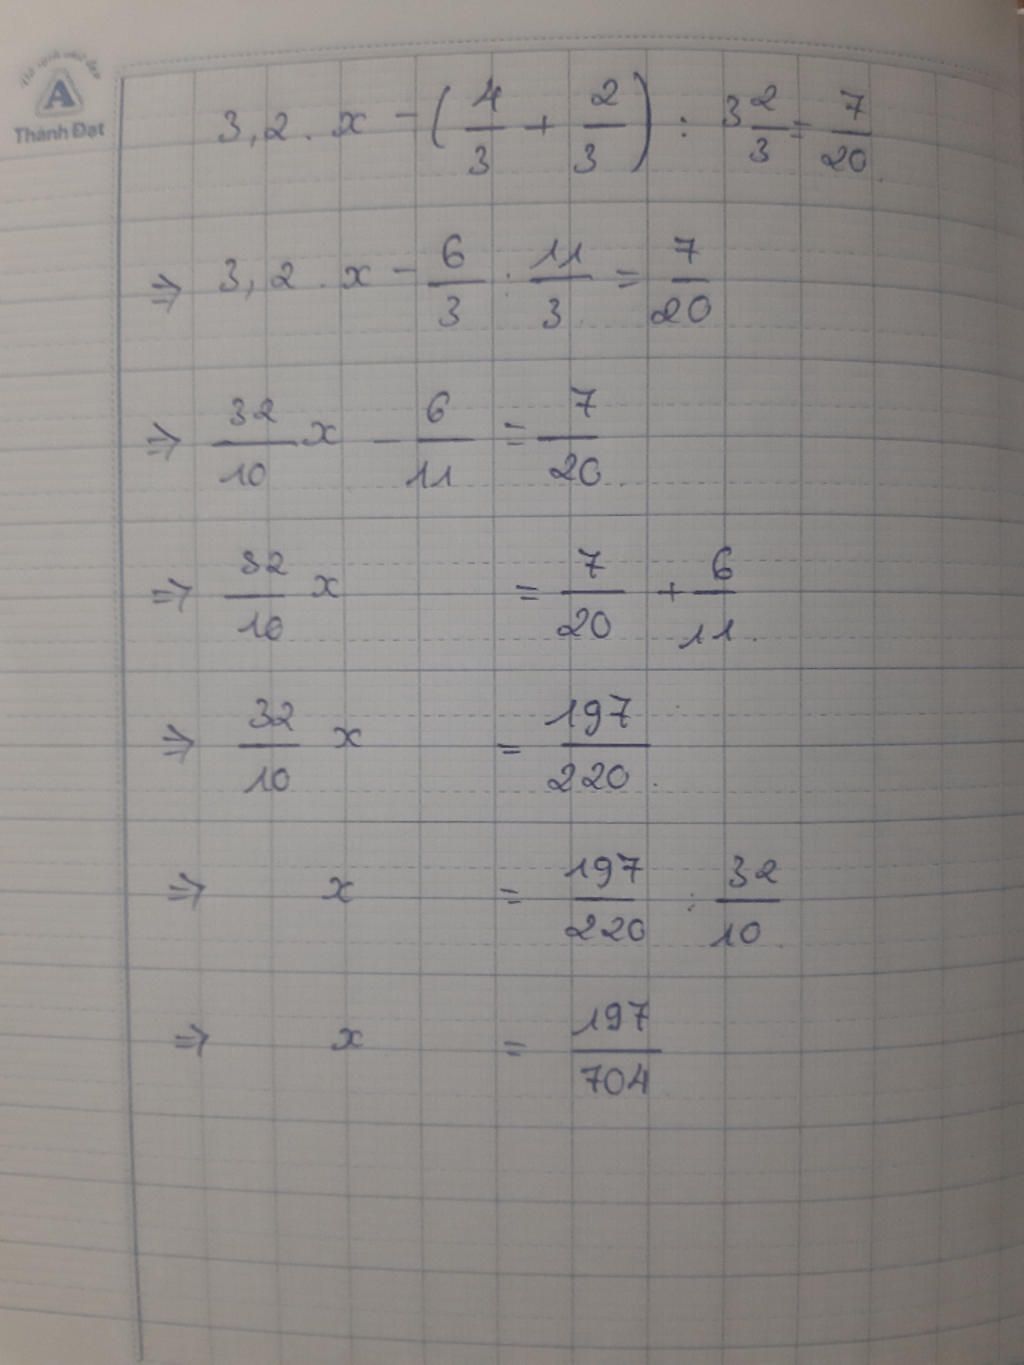 A
Thành Đạt
3,2 . x - (4/3 + 2/3) : 3 2/3 = 7/20
⇒ 3,2 . x - 6/3 : 11/3 = 7/20
⇒ 32/10 x - 6/11 = 7/20
⇒ 32/10 x = 7/20 + 6/11
⇒ 32/10 x = 197/220
⇒ x = 197/220 : 32/10
⇒ x = 197/704